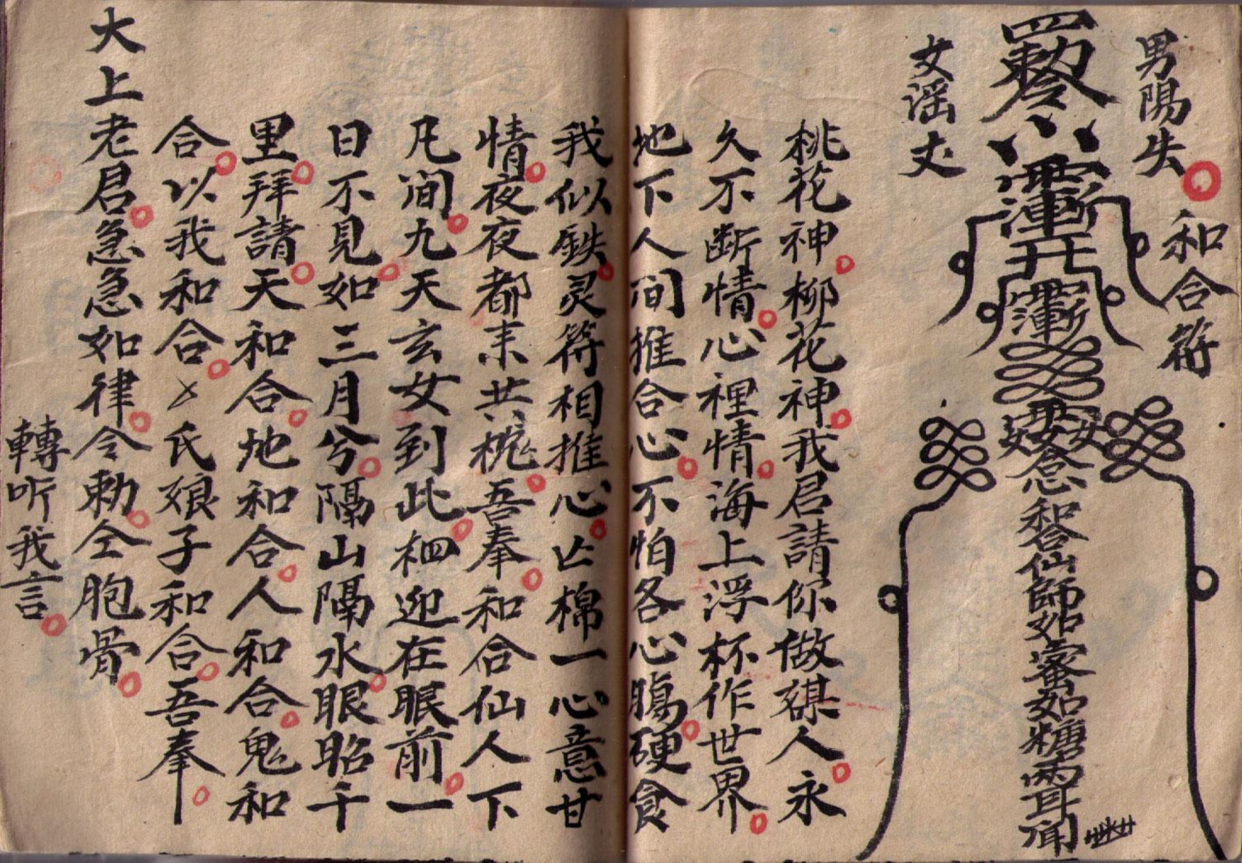 男陽失
和合符
女謡丈
念和合仙師如蜜如糖
桃花神柳花神我君請你做媒人永
久不断情心裡情海上浮杯作世界
地下人间推合心不怕各心腸硬食
我似鉄灵符相推心亡棉一心意甘
情夜夜都来共枕吾奉和合仙人下
凡间九天玄女到此裀迎在眼前一
日不見如三月兮隔山隔水眼昭千
里拜請天和合地和合人和合鬼和
合以我和合 氏娘子和合吾奉
大上老君急急如律令勅仝胞骨
轉听我言